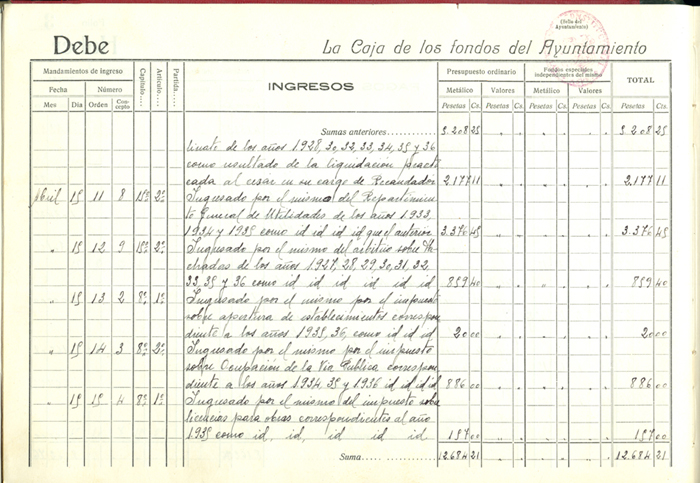 (Sello del Ayuntamiento)
Debe
La Caja de los fondos del Ayuntamiento
Mandamientos de ingreso Capítulo Artículo Partida. INGRESOS Presupuesto ordinario Fondos especiales independientes del mismo TOTAL
Fecha Número Metálico Valores Metálico Valores
Mes Día Orden Concepto Pesetas Cs. Pesetas Cs. Pesetas Cs. Pesetas Cs. Pesetas Cts.
Sumas anteriores 5.208 25 5.208 25
de los años 1928, 30, 32, 33, 34, 35 y 36
como resultado de la liquidación practi
cada al cesar en su cargo de Recaudador 2.177 11 2.177 11
Abril 15 11 8 15º 2º Ingresado por el mismo del Repartimien
to General de Utilidades de los años 1933,
1934 y 1935 como id id id que el anterior 3.376 45 3.376 45
" 15 12 9 15º 2º Ingresado por el mismo del arbitrio sobre Fa
chadas de los años 1927, 28, 29, 30, 31, 32,
33, 35 y 36 como id id id id id id 859 40 859 40
" 15 13 2 8º 1º Ingresado por el mismo por el impuesto
sobre apertura de establecimientos correspon
diente a los años 1935, 36, como id id id 20 00 20 00
" 15 14 3 8º 2º Ingresado por el mismo por el impuesto
sobre Ocupación de la Vía Publica correspon
diente a los años 1934, 35 y 1936 id id id id 886 00 886 00
" 15 15 4 8º 1º Ingresado por el mismo del impuesto sobre
licencias para obras correspondientes al año
1935 como id, id, id id id 157 00 157 00
Suma 12.684 21 12.684 21